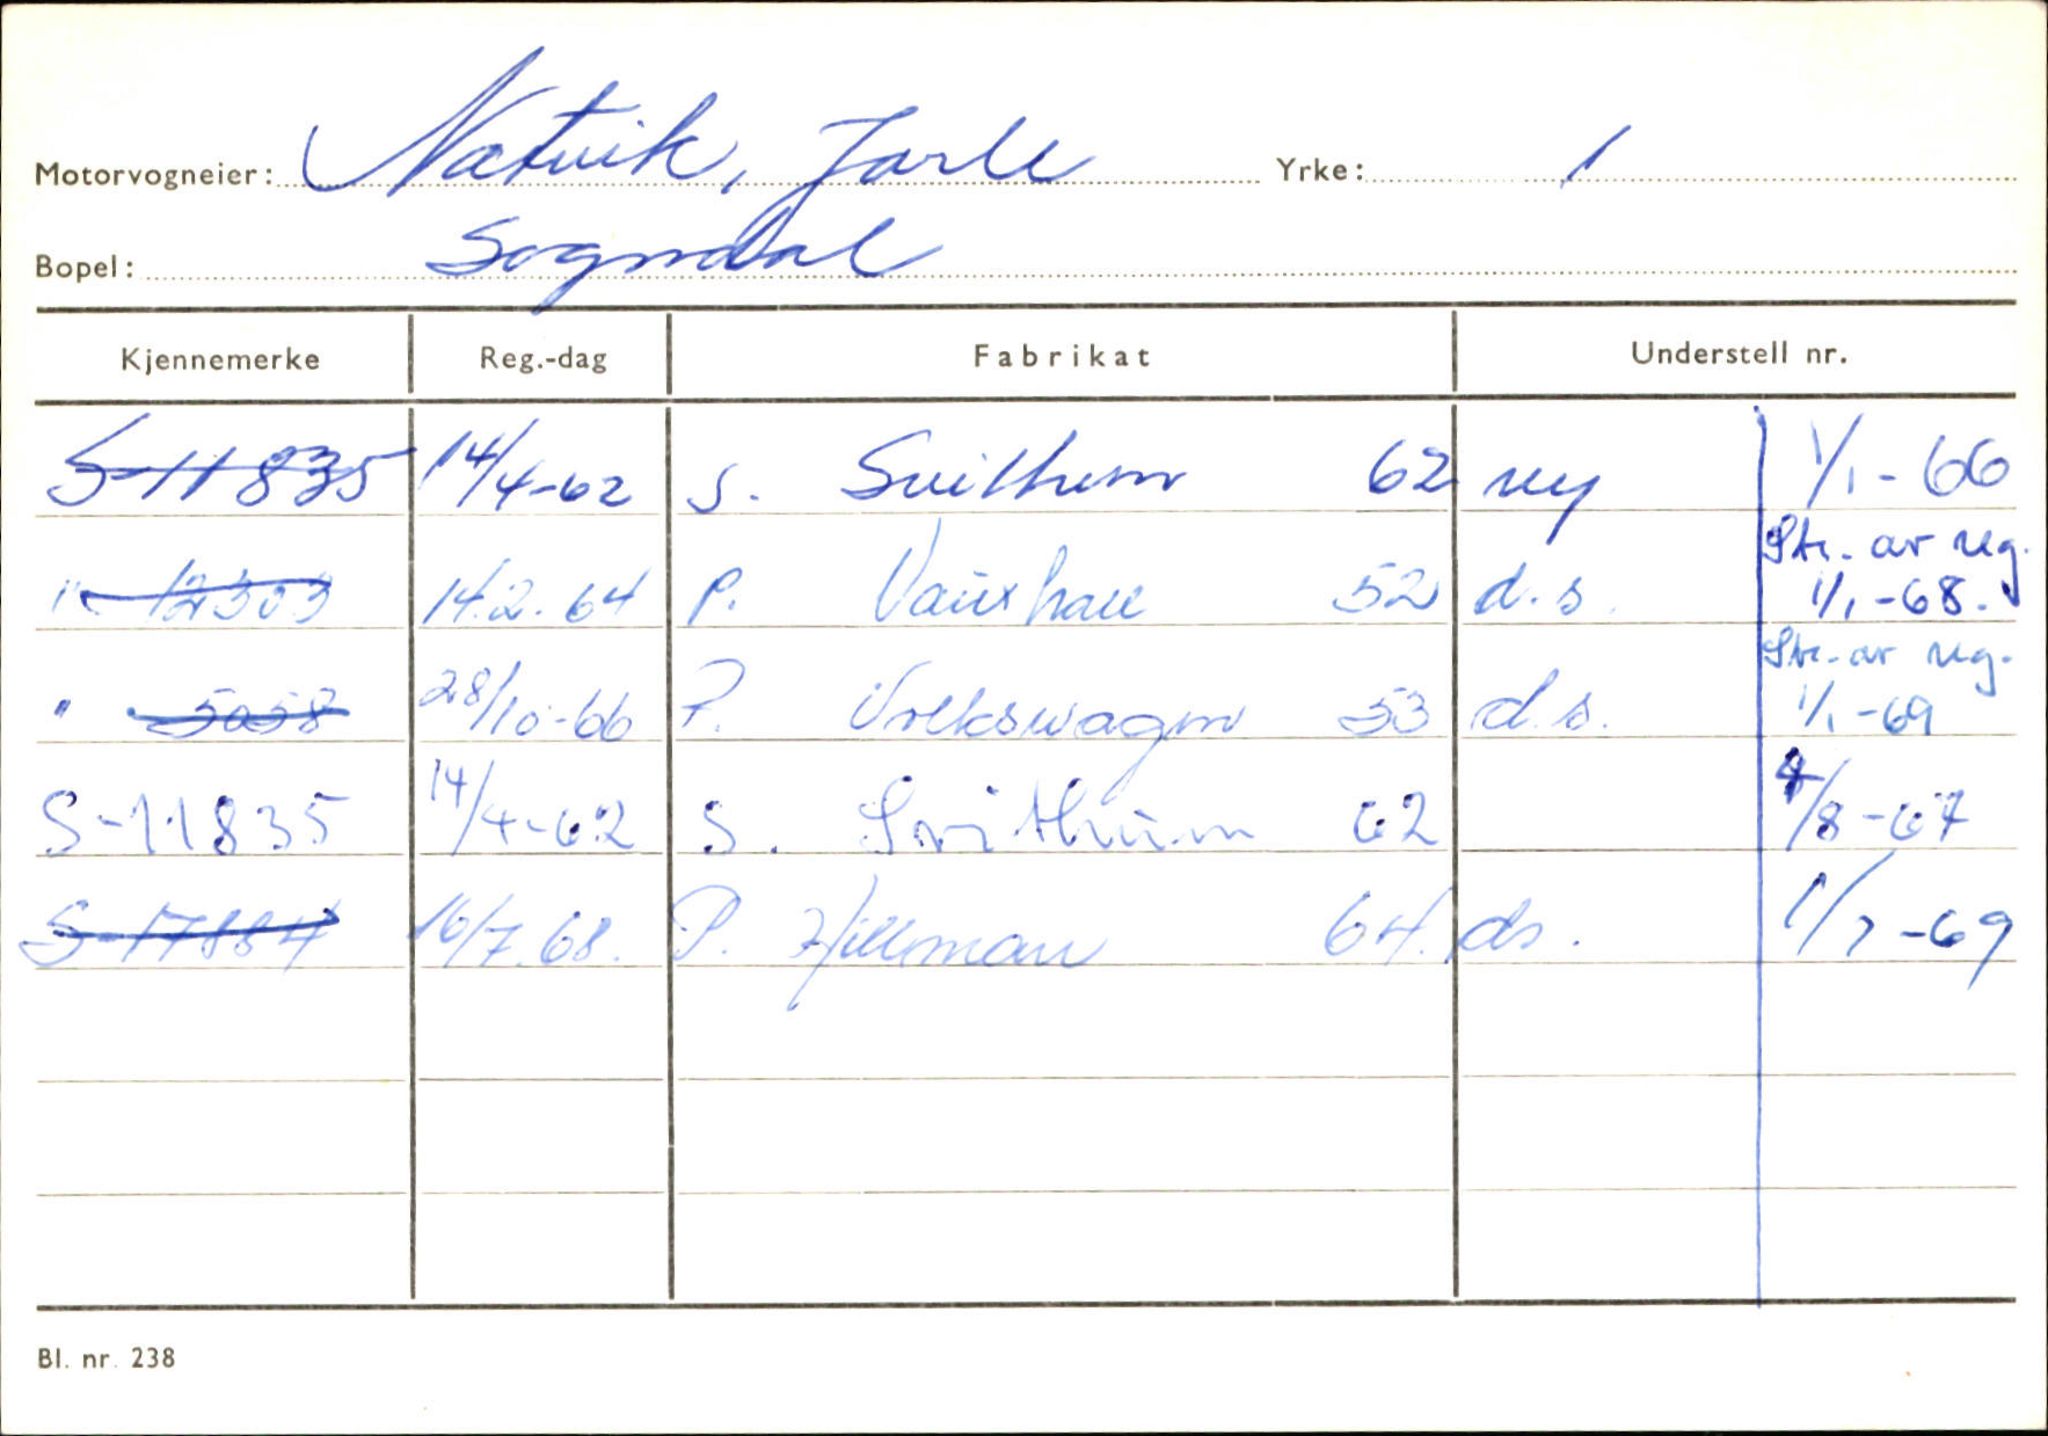 Motorvogneier: Natvik, Jarle Yrke: 1
Bopel: Sogndal
Kjennemerke Reg.-dag Fabrikat Understell nr.
S-11835 14/4-62 S. Svithun 62 ny 1/1-66
" 12303 14.2.64 P. Vauxhall 52 d.s. Str. av reg. 1/1-68.
" 5058 28/10-66 P. Volkswagen 53 d.s. Str. av reg. 1/1-69
S-11835 14/4-62 S. Svithun 62 /8-67
S-17884 16/7.68. P. Hillman 64. ds. 1/7-69
Bl. nr. 238